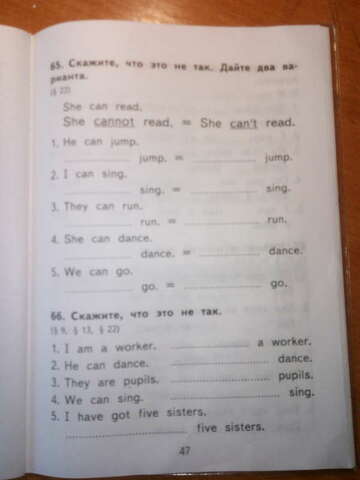 65. Скажите, что это не так. Дайте два ва-
рианта.
(§ 22)
She can read.
She cannot read. = She can't read.
1. He can jump.
jump. = jump.
2. I can sing.
sing. = sing.
3. They can run.
run. = run.
4. She can dance.
dance. = dance.
5. We can go.
go. = go.
66. Скажите, что это не так.
(§ 9, § 13, § 22)
1. I am a worker. a worker.
2. He can dance. dance.
3. They are pupils. pupils.
4. We can sing. sing.
5. I have got five sisters.
five sisters.
47